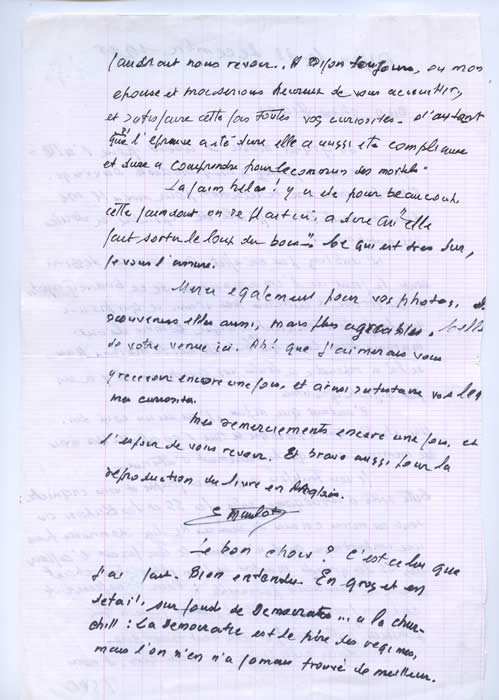 faudrait nous revoir. A Dijon toujours, ou mon
epouse et moi serions heureux de vous accueillir,
et satisfaire cette fois toutes vos curiosites. d'autant
que "l'epreuve a été dure elle a aussi eté compliquée
et dure a comprendre pour le commun des mortels.
La faim helas! y a ete pour beaucoup.
cette faim dont on se plait ici, a dire qu'"elle
fait sortir le loup du bois". Ce qui est tres sur,
je vous l'assure.
Merci egalement pour vos photos,
souvenirs elles aussi, mais plus agreables,
de votre venue ici. Ah! que j'aimerais vous
y recevoir encore une fois, et ainsi satisfaire vos
mes curiosites.
Mes remerciements encore une fois, et
l'espoir de vous revoir. Et bravo aussi pour la
reproduction du livre en Anglais.
Le bon choix? C'est celui que
j'ai fait. Bien entendu. En gros et en
detail, sur fonds de Democratie... a la Chur-
chill: La Democratie est le pire des regimes,
mais l'on n'en n'a jamais trouvé de meilleur.